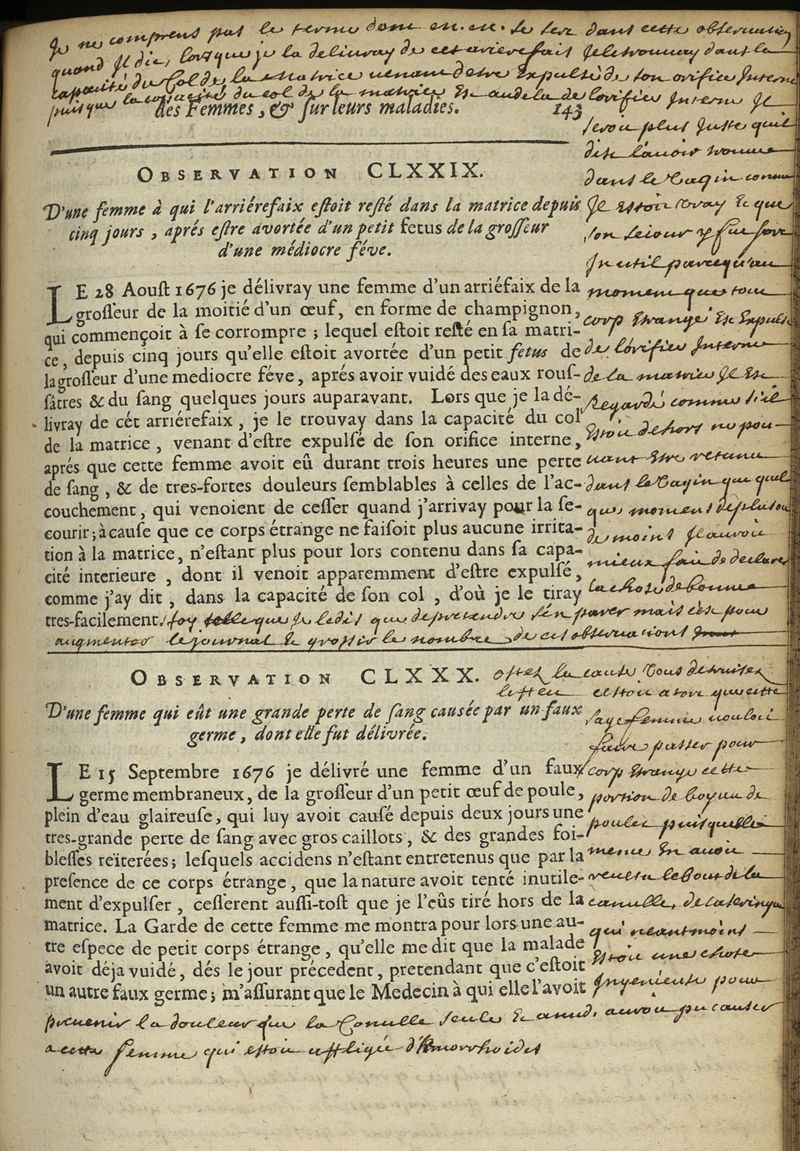 Je ne comprens pas le terme dont m. m. se sert dans cette observation
quand Il dit, lorsque je la delivray de cet arierefait Je le trouvay dans la
capacité du Col de la matrice venant d'estre Expulsé de son orifice Interne
puis que la capacité du col de la matrice Est audela de l'orifice Interne Il
des Femmes, & ſur leurs maladies. 143
seroit plus Juste quil
dit l'avoir trouvé
dans le Vagin comme
Il Estoit Vray Et que
son seiour y fut fort
Inutil parcequ'au
moment que tout
corp Etrange Est Expulsé
de l'orifice Interne
de la matrice Il Est
Regardé comme s'il
Estoit dehors ne pou
vant Estre retenu
dans le Vagin que quel
ques moment de plus ou
de moins Il auroit
mieux fait de declarer
la chose de bonne
OBSERVATION CLXXIX.
D'une femme à qui l'arriérefaix eſtoit reſté dans la matrice depuis
cinq jours, aprés eſtre avortée d'un petit fetus de la groſſeur
d'une médiocre féve.
LE 28 Aouſt 1676 je délivray une femme d'un arriéfaix de la
groſſeur de la moitié d'un œuf, en forme de champignon,
qui commençoit à ſe corrompre ; lequel eſtoit reſté en ſa matri-
ce, depuis cinq jours qu'elle eſtoit avortée d'un petit fetus de
la groſſeur d'une mediocre féve, aprés avoir vuidé des eaux rouſ-
ſâtres & du ſang quelques jours auparavant. Lors que je la dé-
livray de cét arriérefaix, je le trouvay dans la capacité du col
de la matrice, venant d'eſtre expulſé de ſon orifice interne,
aprés que cette femme avoit eû durant trois heures une perte
de ſang, & de tres-fortes douleurs ſemblables à celles de l'ac-
couchement, qui venoient de ceſſer quand j'arrivay pour la ſe-
courir; à cauſe que ce corps étrange ne faiſoit plus aucune irrita-
tion à la matrice, n'eſtant plus pour lors contenu dans ſa capa-
cité interieure, dont il venoit apparemment d'eſtre expulſé,
comme j'ay dit, dans la capacité de ſon col, d'où je le tiray
tres-facilement.
foy telle que Je le dis que de pretendre s'en parer mais c'est pour
augmenter le journal Et grossir le nombre de ces observations
OBSERVATION CLXXX.
ostez la cause Vous detruisez
l'effet
D'une femme qui eût une grande perte de ſang cauſée par un faux
germe, dont elle fut délivrée.
LE 15 Septembre 1676 je délivré une femme d'un faux
germe membraneux, de la groſſeur d'un petit œuf de poule,
plein d'eau glaireuſe, qui luy avoit cauſé depuis deux jours une
tres-grande perte de ſang avec gros caillots, & des grandes foi-
bleſſes reïterées; leſquels accidens n'eſtant entretenus que par la
preſence de ce corps étrange, que la nature avoit tenté inutile-
ment d'expulſer, ceſſerent auſſi-toſt que je l'eûs tiré hors de la
matrice. La Garde de cette femme me montra pour lors une au-
tre eſpece de petit corps étrange, qu'elle me dit que la malade
avoit déja vuidé, dés le jour précedent, pretendant que c'eſtoit
un autre faux germe; m'aſſurant que le Medecin à qui elle l'avoit
cestoit a tort que cette
sage femme vouloit
faire passer pour
corp Etrange cette
portion de boyau de
poulet puisquelle
mesme En avoit
revetu le bout de la
canulle, de la seringue
qui neantmoins
Estoit une chose
Ingenieuse pour
prevenir la douleur que la Canulle seule auroit pu causer
a cette femme qui estoit affligée d'hémorrhoides